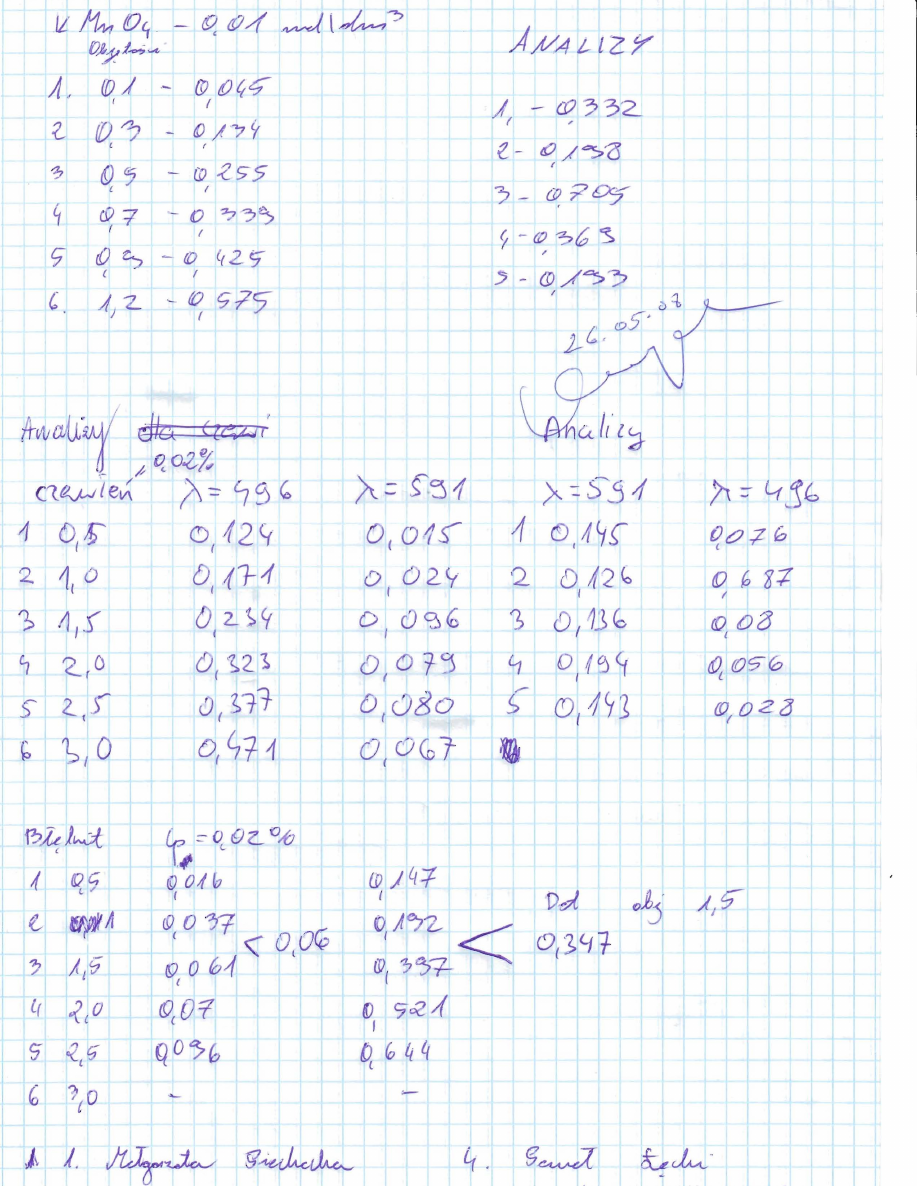 KMnO4 - 0,01 mol/dm³
Objętości
1. 0,1 - 0,045
2 0,3 - 0,134
3 0,5 - 0,255
4 0,7 - 0,339
5 0,9 - 0,425
6. 1,2 - 0,575
ANALIZY
1, - 0,332
2 - 0,198
3 - 0,705
4 - 0,369
5 - 0,193
26.05.08
Analizy
"0,02%
czerwień λ = 496 λ = 591
1 0,5 0,124 0,015
2 1,0 0,171 0,024
3 1,5 0,234 0,096
4 2,0 0,323 0,079
5 2,5 0,377 0,080
6 3,0 0,471 0,067
Analizy
λ = 591 λ = 496
1 0,145 0,076
2 0,126 0,687
3 0,136 0,08
4 0,194 0,056
5 0,143 0,028
Błękit Cp = 0,02%
1 0,5 0,016 0,147
2 1 0,037 0,192
< 0,06 < 0,347
Dod obj 1,5
3 1,5 0,061 0,397
4 2,0 0,07 0,521
5 2,5 0,096 0,644
6 3,0 - -
1. Małgorzata 4.